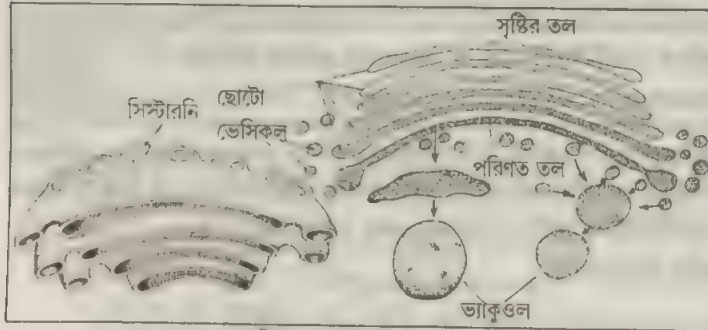 সৃষ্টির তল
সিস্টারনি
ছোটো
ভেসিকল্
পরিণত তল
ভ্যাকুওল